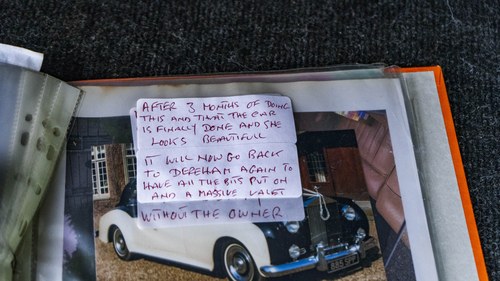 AFTER 3 MONTHS OF DOING
THIS AND THAT THE CAR
IS FINALLY DONE AND SHE
LOOKS BEAUTIFULL
IT WILL NOW GO BACK
TO DEREHAM AGAIN TO
HAVE ALL THE BITS PUT ON
AND A MASSIVE VALET
WITHOUT THE OWNER